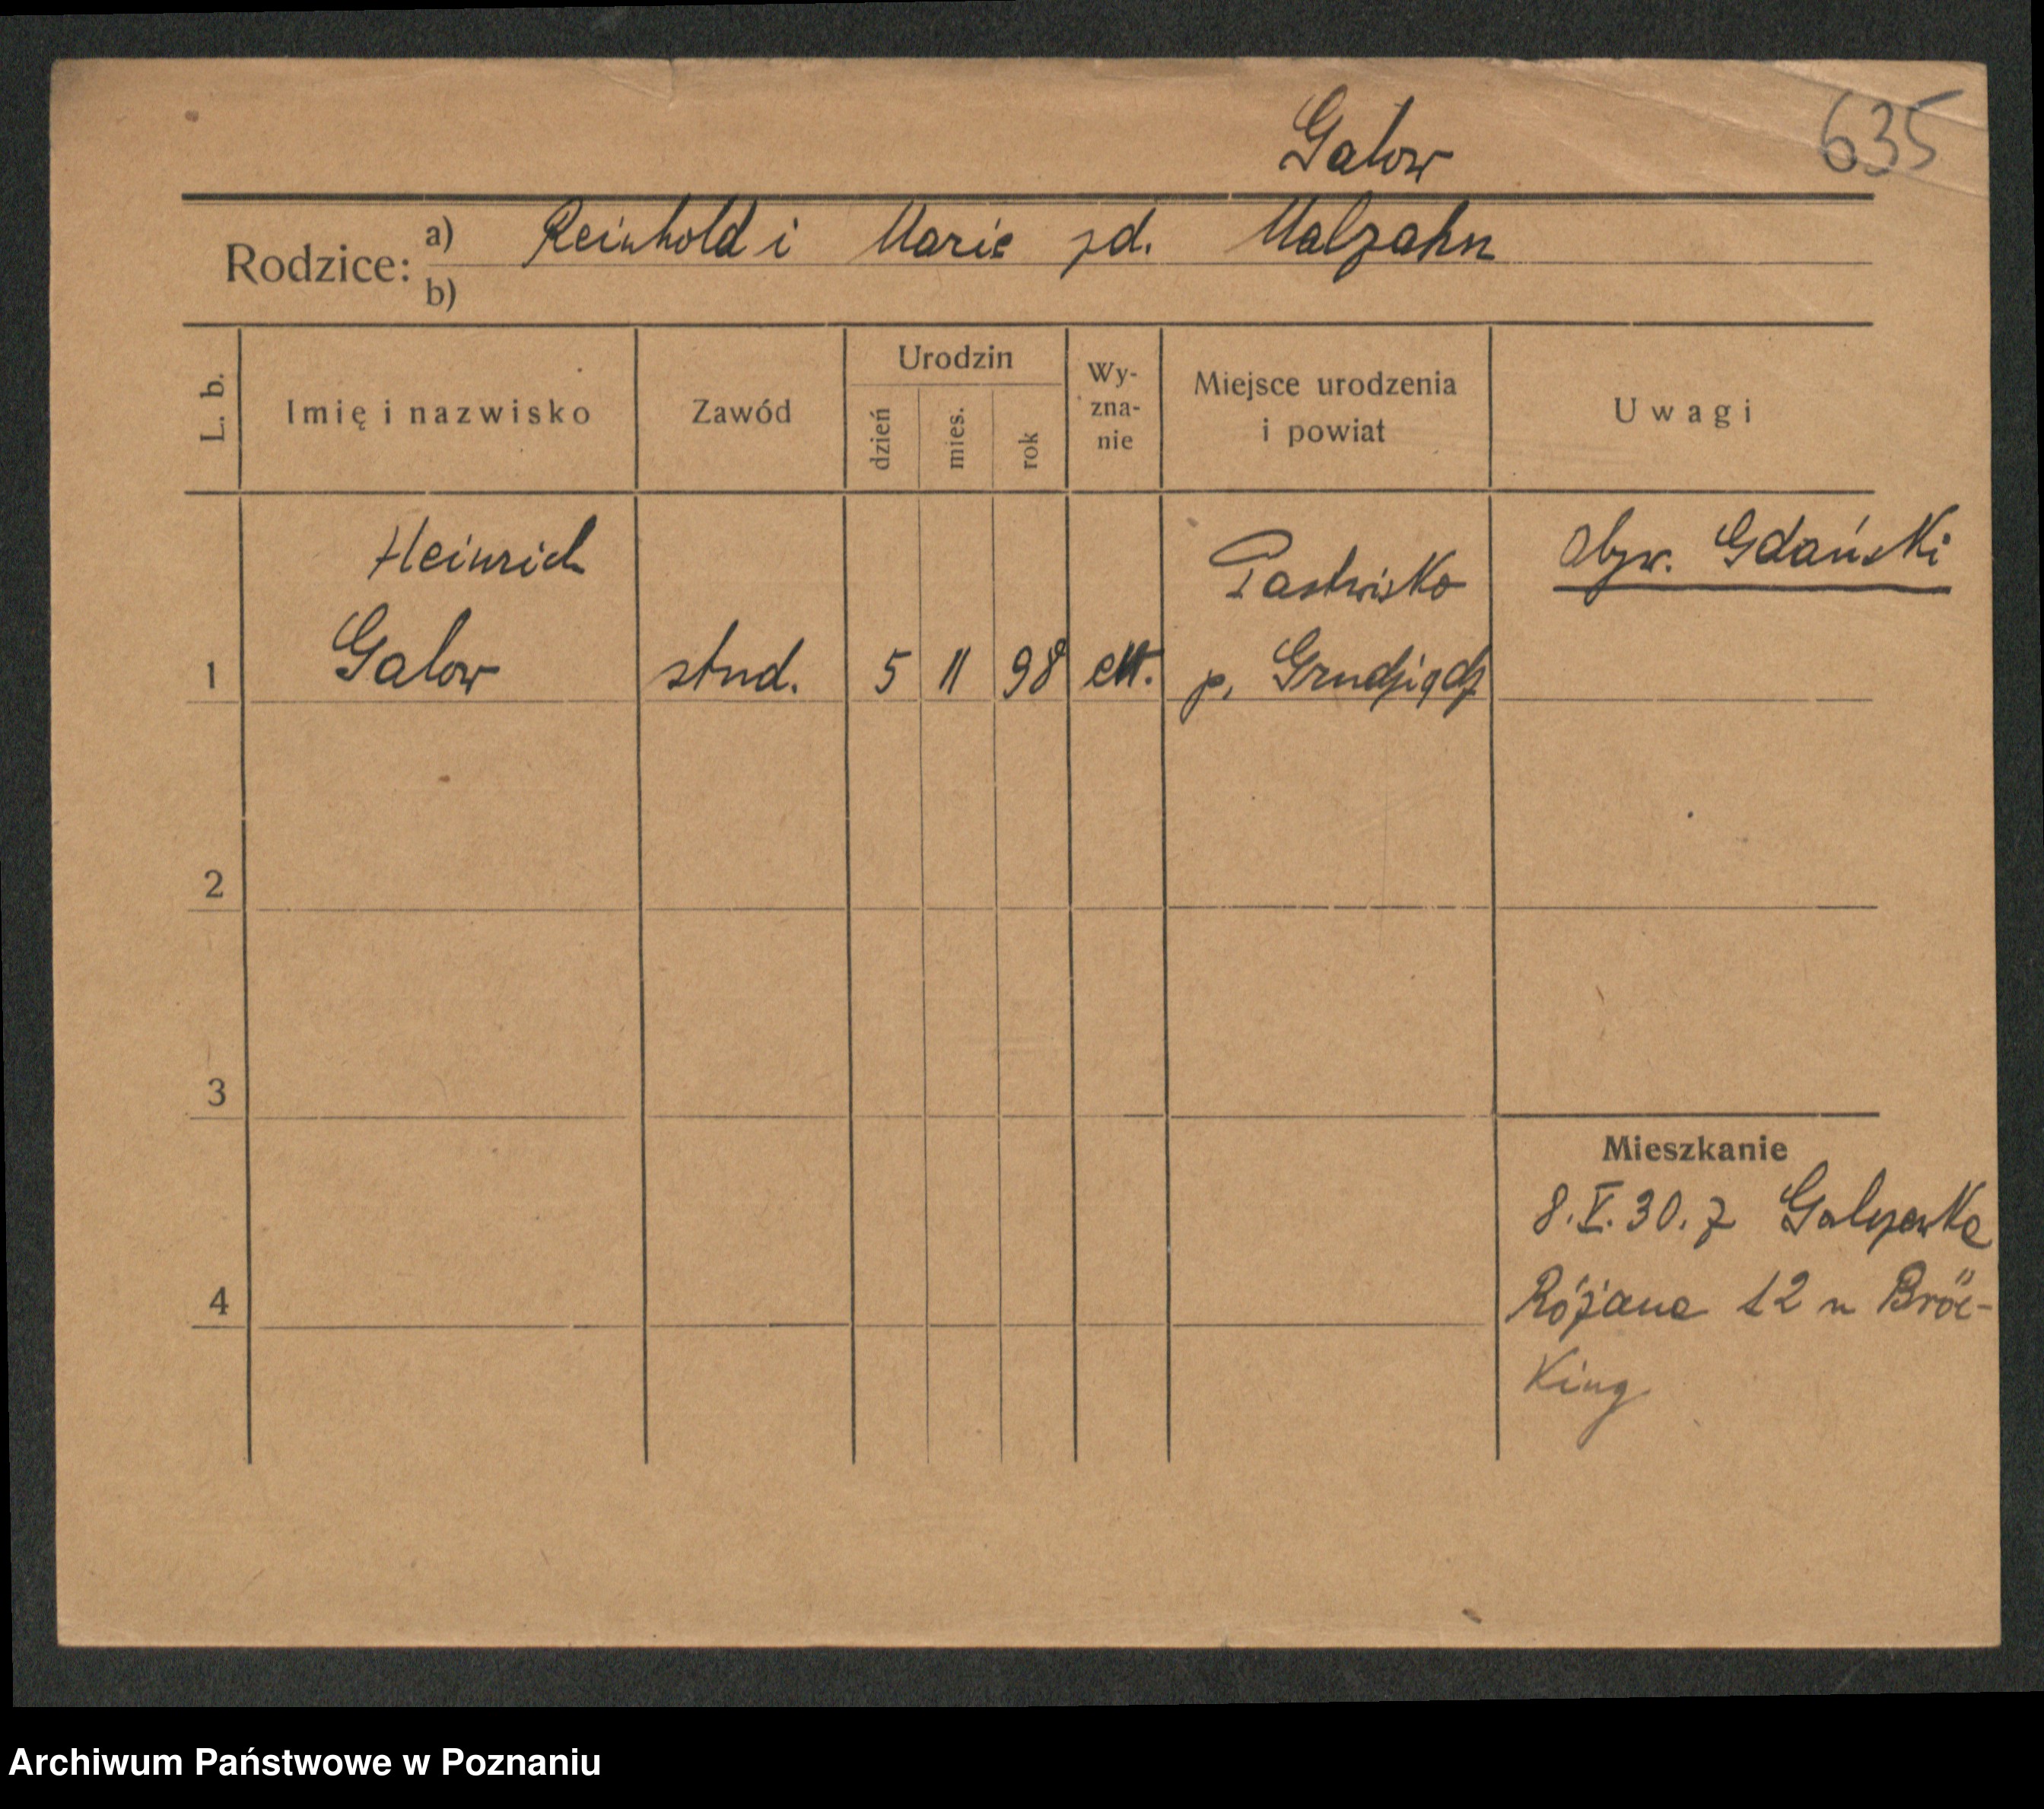 Galow 635
Rodzice: a) Reinhold i Marie zd. Malzahn
b)
L. b. Imię i nazwisko Zawód Urodzin dzień mies. rok Wy-zna-nie Miejsce urodzenia i powiat Uwagi
Heinrich Pastwisko obyw. Gdański
1 Galow stud. 5 11 98 ew. p. Grudziądz
2
3
Mieszkanie
8.V.30. z
4 Różana 12 u Bröc-
king
Archiwum Państwowe w Poznaniu